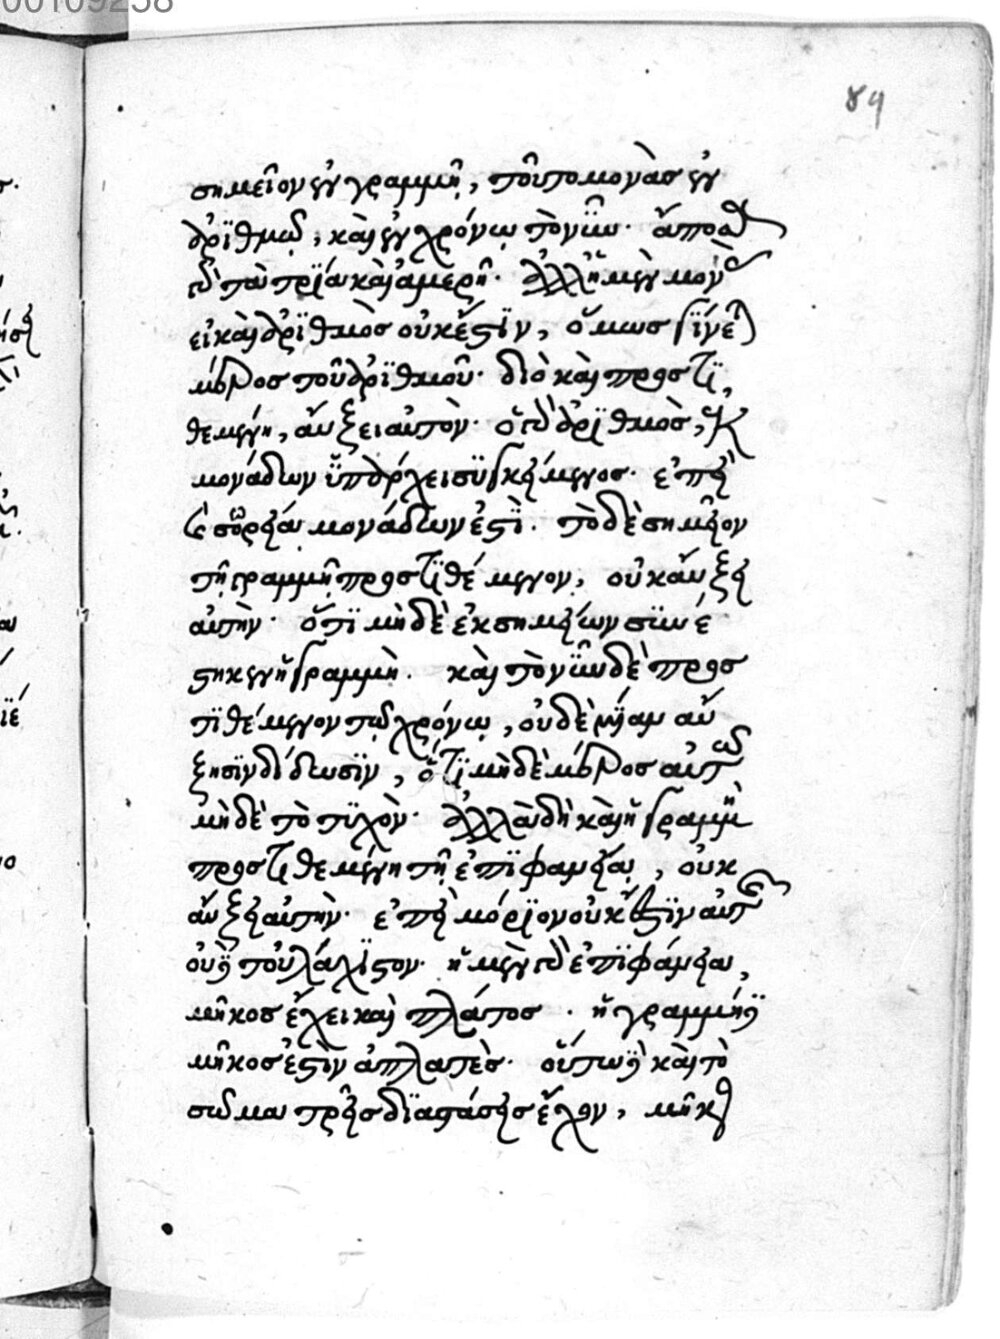 00109258
89
σημεῖον ἐν γραμμῇ, τοῦτο μονὰς ἐν
ἀρϊθμῷ, καὶ ἐν χρόνῳ τὸ νῦν· ἄποσα
τὰ τρία καὶ ἀμερῆ· ἀλλ' ἡ μὲν μονὰς
εἰ καὶ ἀρϊθμὸς οὐκ ἔστϊν, ὅμως γίνεται
μέρος τοῦ ἀρϊθμοῦ· διὸ καὶ προστϊ
θεμένη, αὔξει αὐτὸν· ὁ δὲ ἀρϊθμὸς, ἐκ
μονάδων ὑπάρχει συγκείμενος· ἐπεὶ
σωρεία μονάδων ἐστὶ· τὸ δὲ σημεῖον
τῇ γραμμῇ προστϊθέμενον, οὐκ αὔξει
αὐτὴν· ὅτϊ μὴ δὲ ἐκ σημείων συνέ
στηκεν ἡ γραμμὴ· καὶ τὸ νῦν δὲ προσ
τϊθέμενον τῷ χρόνῳ, οὐδὲ μίαν αὔ
ξησϊν δίδωσϊν, ὅτϊ μὴ δὲ μέρος αὐτοῦ
μὴ δὲ τὸ τϋχὸν· ἀλλὰ δὴ καὶ ἡ γραμμὴ
προστϊθεμένη τῇ ἐπϊφανείᾳ, οὐκ
αὔξει αὐτὴν· ἐπεὶ μόρϊον οὐκ ἔστϊν αὐτῆς
οὐδὲ τοὐλάχϊστον· ἡ μὲν γὰρ ἐπϊφάνεια,
μῆκος ἔχει καὶ πλάτος· ἡ γραμμὴ δὲ
μῆκος ἐστὶν ἀπλατὲς· οὕτω δὲ καὶ τὸ
σῶμα τρεῖς δϊαστάσεις ἔχον, μῆκος